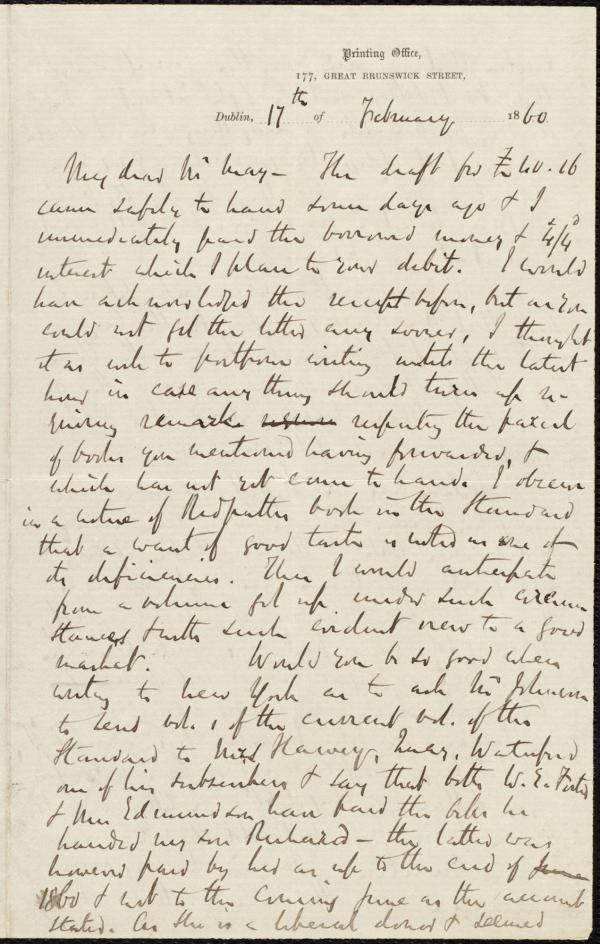 Printing Office,
177, GREAT BRUNSWICK STREET,
Dublin, 17th of February 1860
My dear Mr May - The draft for £40.16
came safely to hand some days ago & I
immediately paid the borrowed money & 4/4
interest which I place to your debit. I would
have acknowledged the receipt before, but as you
could not get the letter any sooner, I thought
it as well to postpone writing until the latest
hour in case any thing should turn up re-
quiring remark respecting the parcel
of books you mentioned having forwarded, &
which has not yet come to hand. I observe
in a notice of Redpath's book in the Standard
that a want of good taste is noted as one of
its deficiencies. This I would anticipate
from a volume got up under such circum
stances & with such evident view to a good
market. Would you be so good when
writing to New York as to ask Mr Johnson
to send No. 1 of the current vol. of the
Standard to Miss Harvey, Quay, Waterford
one of his subscribers & say that both W. E. Forster
& Mrs Edmundson have paid the bills he
handed my son Richard - the latter was
however paid by her as up to the end of June
1860 & not to the coming June as the account
stated. As she is a liberal donor & seemed